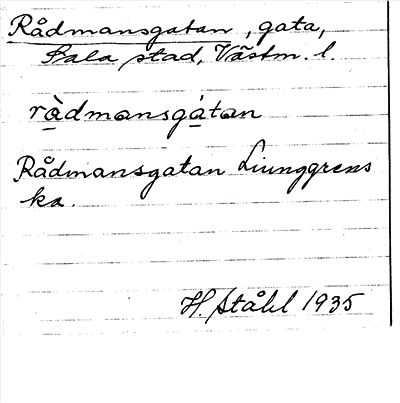 Rådmansgatan, gata,
Sala stad, Västm. l.
rådmansgatan
Rådmansgatan Liunggrens
ka.
H. Ståhl 1935